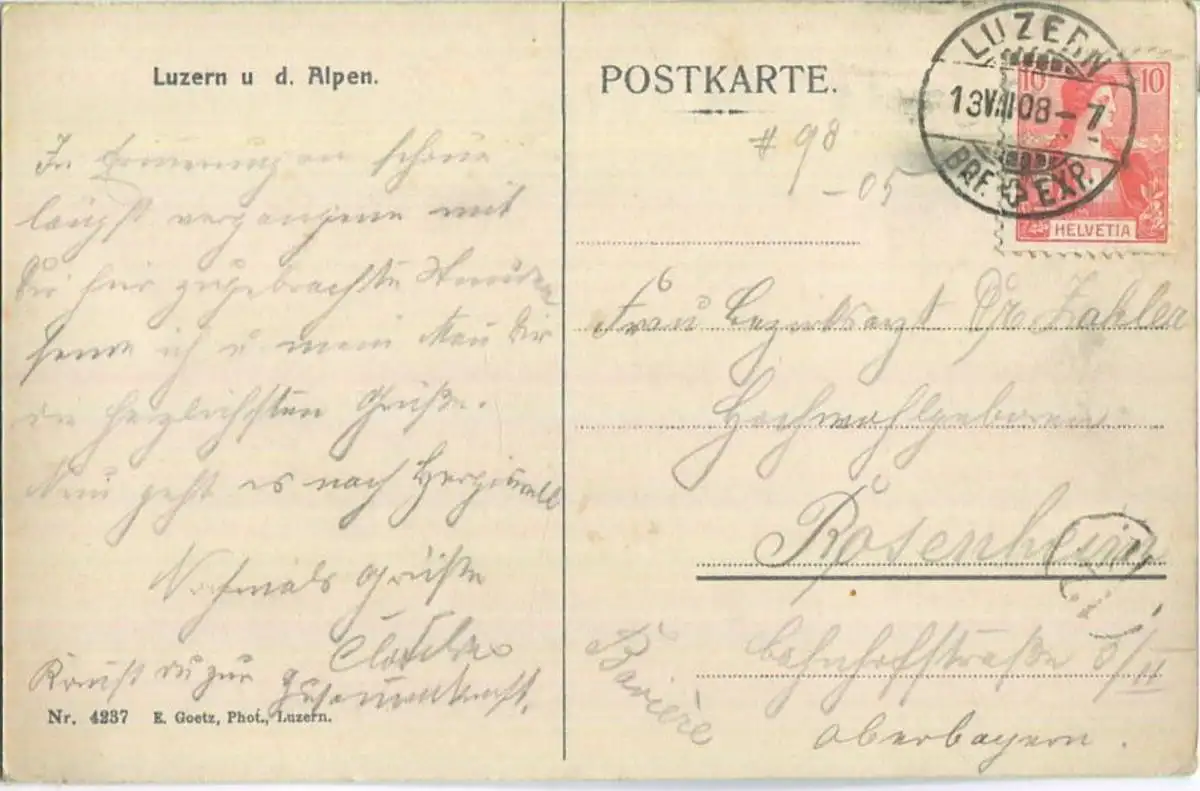 Luzern u d. Alpen.
In Erinnerung an schöne
längst vergangene mit
Dir hier zugebrachte Stunden
sende ich u mein Mann Dir
die herzlichsten Grüße.
Nun geht es nach Hergiswil
Nochmals Grüße
Kommst Du zur Zusammenkunft.
Nr. 4237 E. Goetz, Phot., Luzern.
POSTKARTE.
# 98
-05
LUZERN
13 VIII 08 - 7
BRF. EXP.
10 10
HELVETIA
Frau Bezirksarzt Dr
Hochwohlgeboren
Rosenheim
Bahnhofstraße 8/II
Oberbayern.
Bavière